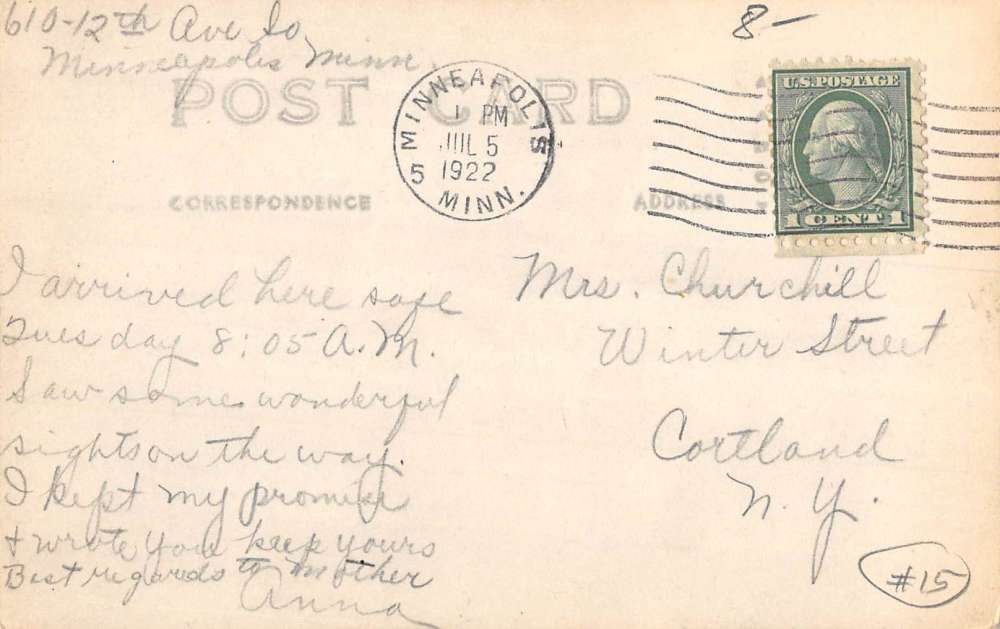 610-12th Ave So
Minneapolis Minn.
8-
POST CARD
MINNEAPOLIS
1 PM
JUL 5
1922
5
MINN.
U.S. POSTAGE
1 CENT 1
CORRESPONDENCE
ADDRESS
I arrived here safe
Tuesday 8:05 A.M.
Saw some wonderful
sights on the way.
I kept my promise
+ wrote you keep yours
Best regards to mother
Anna
Mrs. Churchill
Winter Street
Cortland
N. Y.
#15